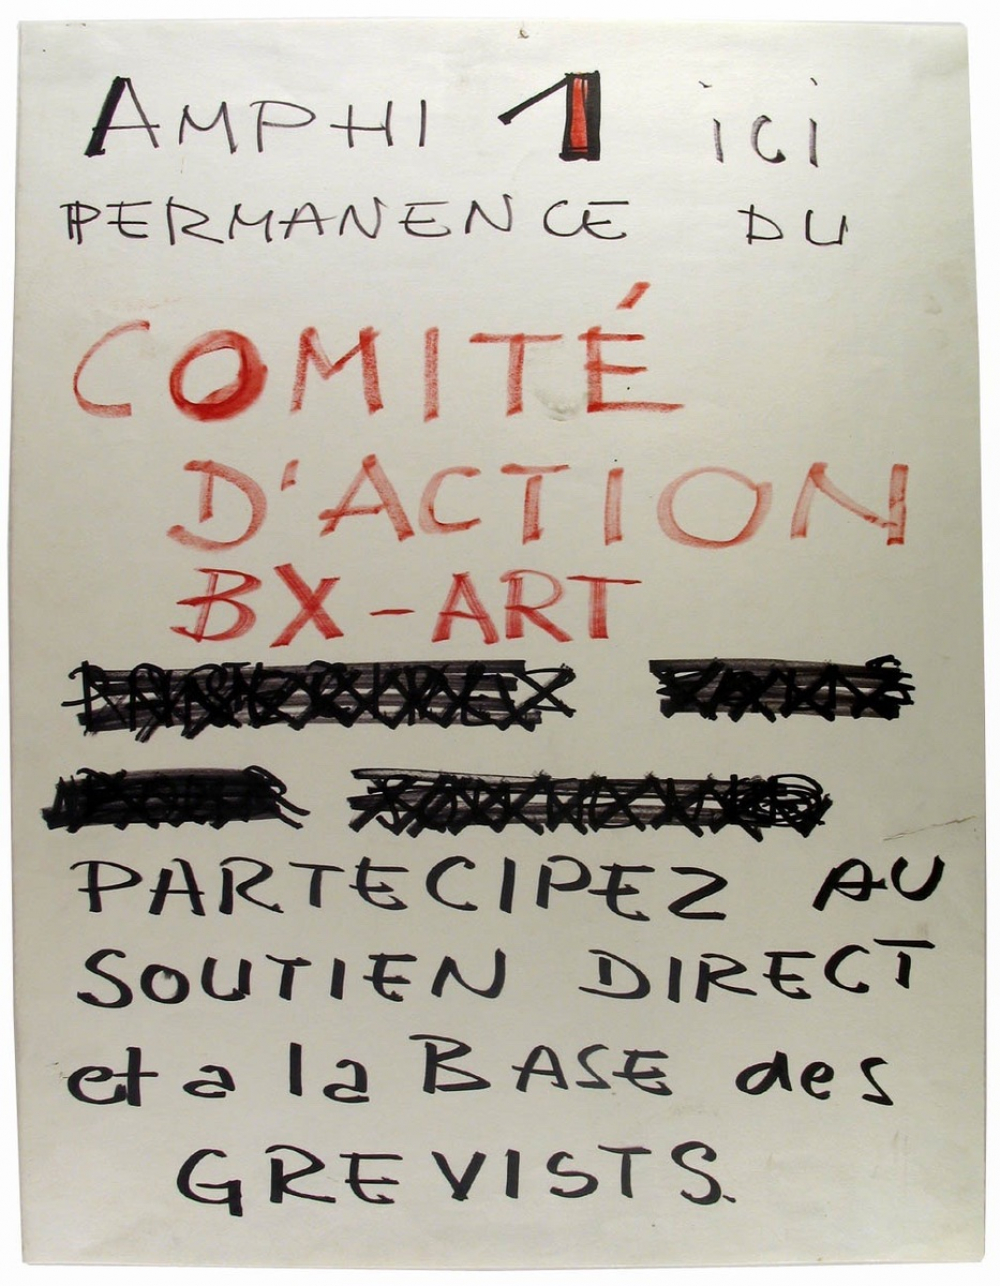 AMPHI 1 ici
PERMANENCE DU
COMITÉ
D'ACTION
BX-ART
PARTECIPEZ AU
SOUTIEN DIRECT
et a la BASE des
GREVISTS.